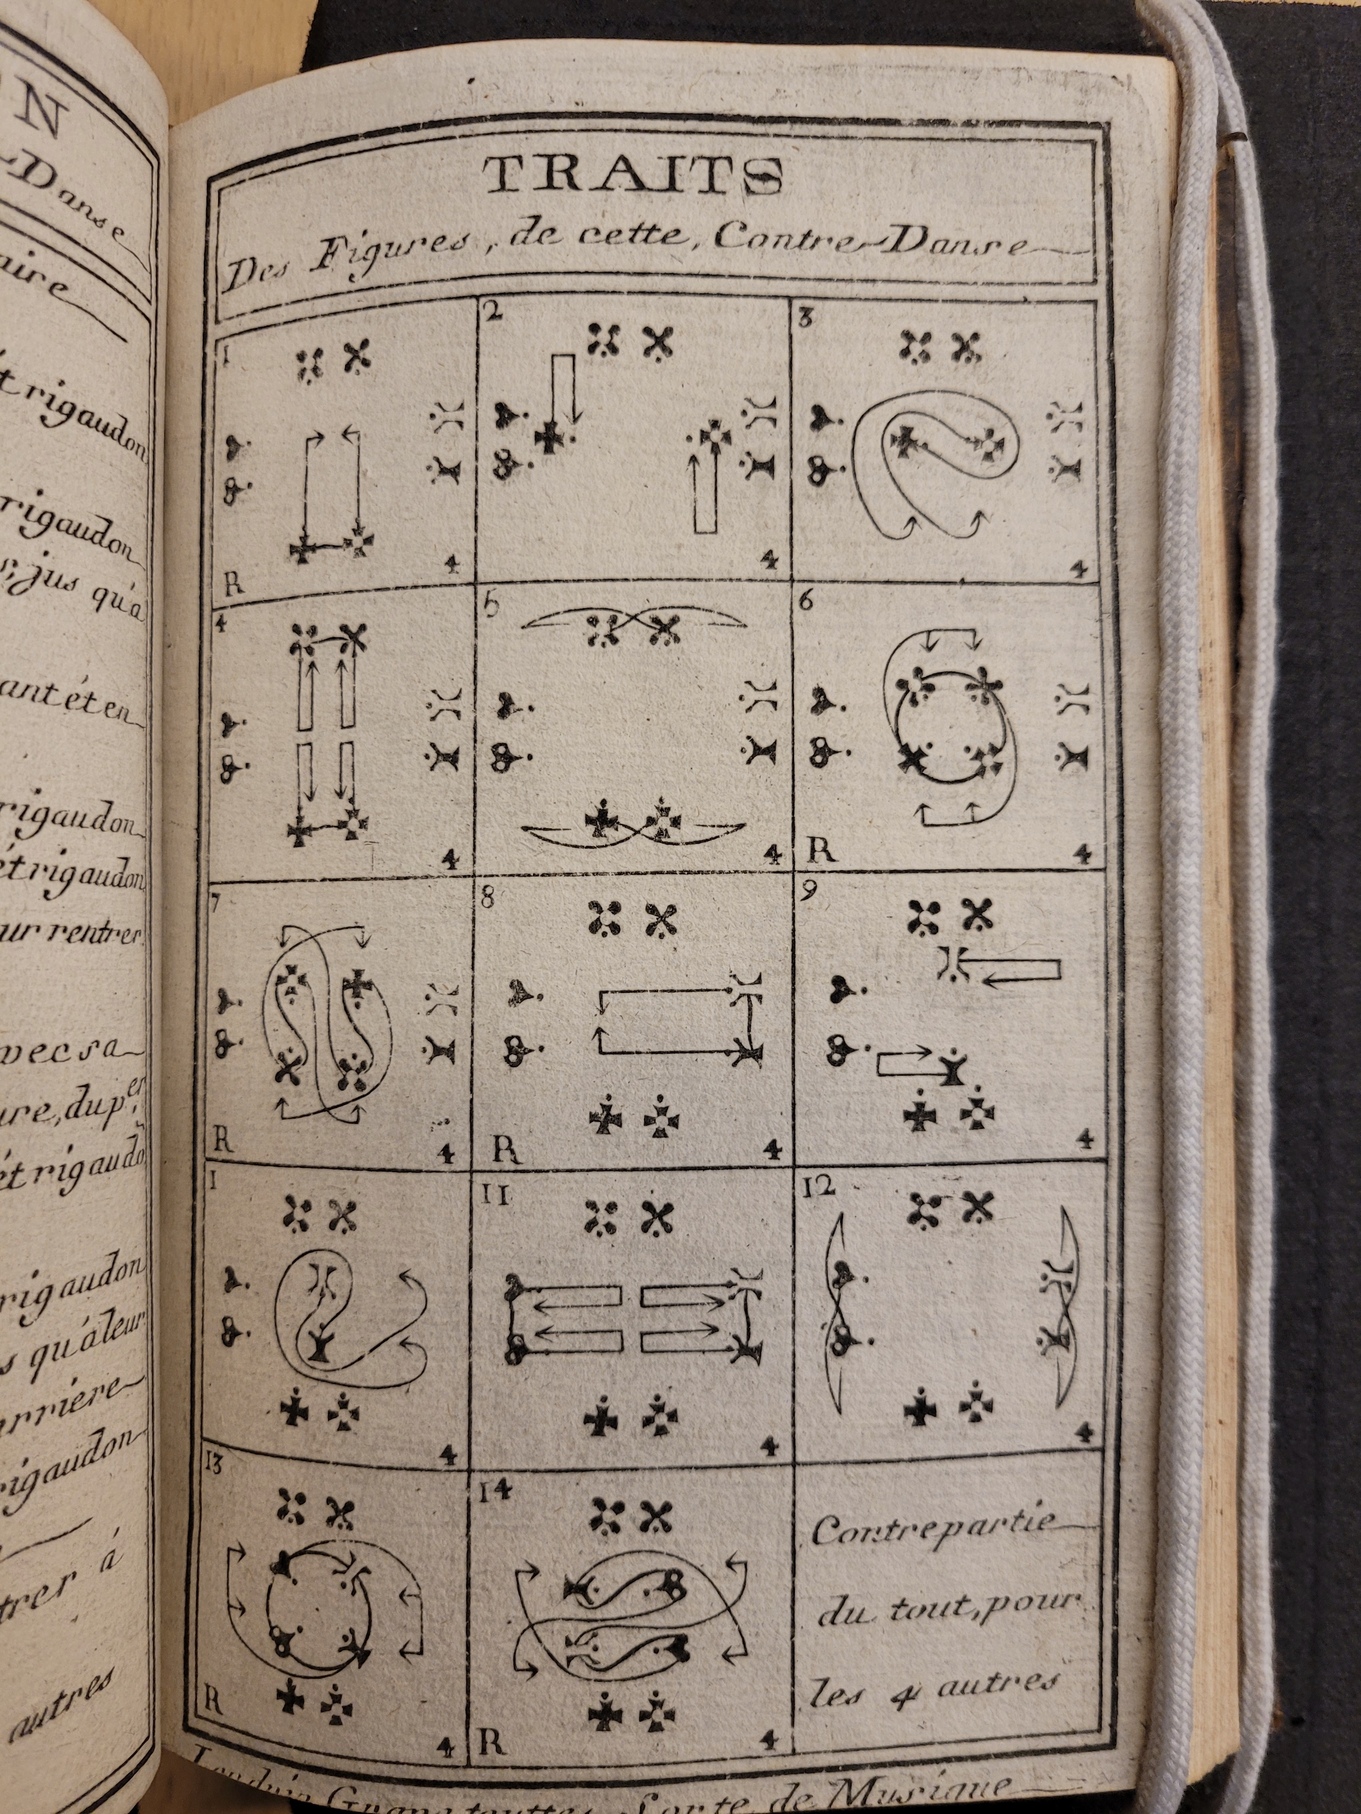 N
Danse
aire
TRAITS
Des Figures, de cette, Contre-Danse
1
2
3
R
4
4
4
étrigaudon
rigaudon
s, jus qu'a
ant ét en
4
5
6
4
4
R
4
rigaudon
étrigaudon
ur rentrer
7
8
9
R
4
R
4
4
vec sa
ure, du per
ét rigaudo
1
11
12
4
4
4
rigaudon
s qu'à leur
arriere
rigaudon
13
14
Contrepartie
du tout, pour
les 4 autres
R
4
R
4
trer á
autres
Grave touttes Sorte de Musique